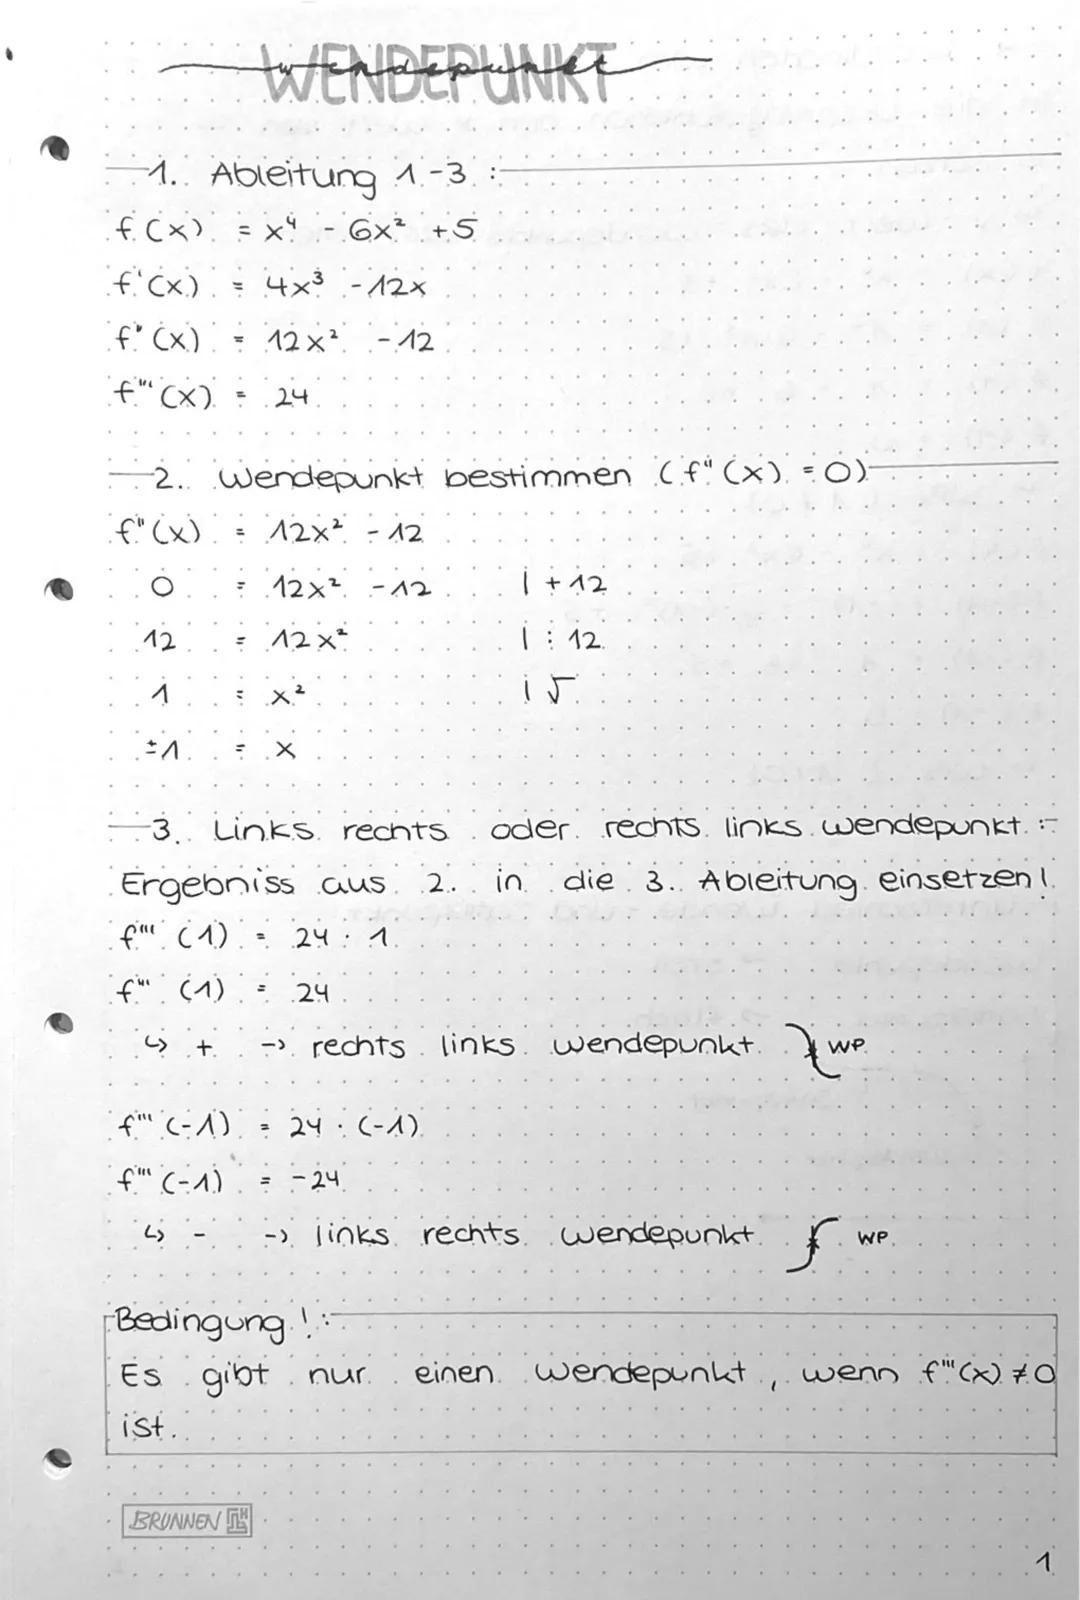 WENDEPUNKT
wendepunkt
1. Ableitung 1-3 :
f(x) = x⁴ - 6x² +5
f'(x) = 4x³ -12x
f''(x) = 12x² -12
f'''(x) = 24
2. Wendepunkt bestimmen (f''(x) = 0)
f''(x) = 12x² -12
0 = 12x² -12 | +12
12 = 12x² | : 12
1 = x² | √
±1 = x
3. Links rechts oder rechts links wendepunkt :
Ergebniss aus 2. in die 3. Ableitung einsetzen!
f''' (1) = 24 · 1
f''' (1) = 24
↳ + -> rechts links wendepunkt WP
f''' (-1) = 24 · (-1)
f''' (-1) = -24
↳ - -> links rechts wendepunkt WP
Bedingung ! :
Es gibt nur einen wendepunkt, wenn f'''(x) ≠ 0
ist.
BRUNNEN
1